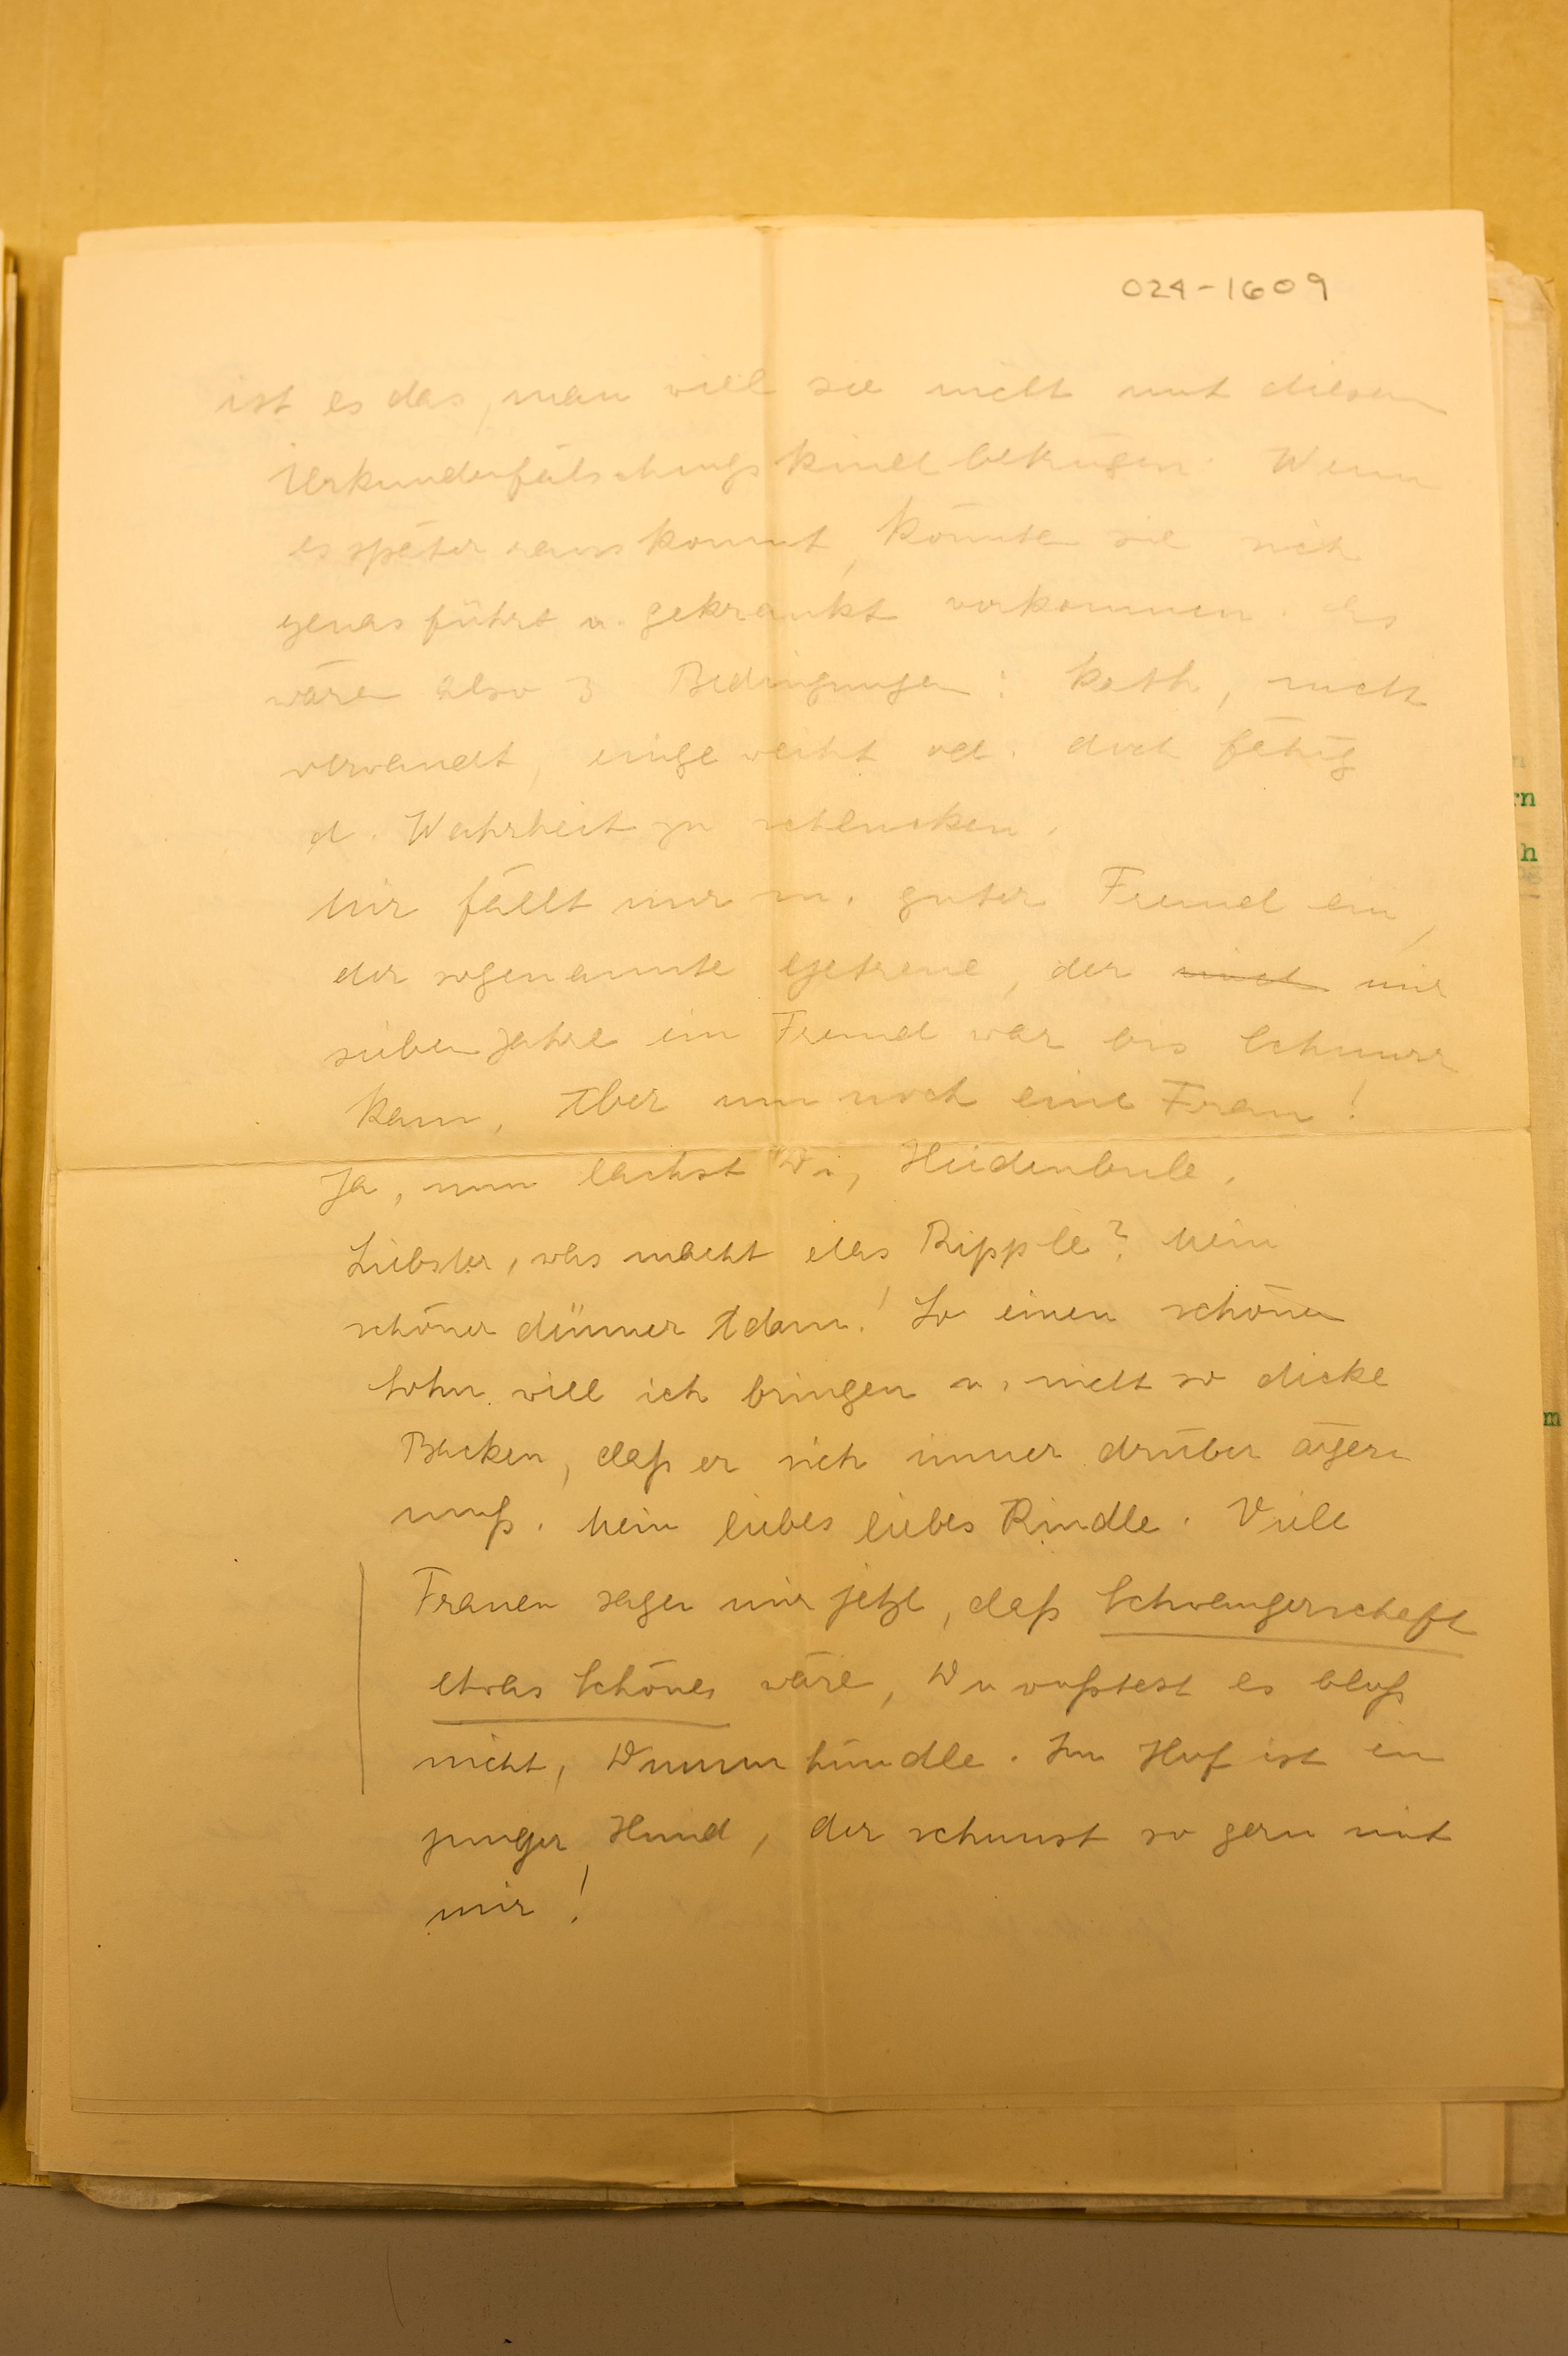 024-1609
ist es das, man will sie nicht mit diesem
Urkundenfälschungskindl betrügen. Wenn
es später rauskommt, könnte sie sich
genasführt u. gekränkt vorkommen. Es
wären also 3 Bedingungen: kath, nicht
verwandt, eingeweiht od. doch fähig
d. Wahrheit zu schlucken.
Mir fällt nur m. guter Freund ein,
der sogenannte Getreue, der mir
sieben Jahre ein Freund war bis Schnurr
kam, Aber nun noch eine Frau!
Ja, nun lachst Du, Heidenbule.
Liebster, was macht das Ripple? Mein
schöner dünner Adam! So einen schönen
Sohn will ich bringen u. nicht so dicke
Backen, daß er sich immer drüber ärgern
muß. Mein liebes liebes Rindle. Viele
Frauen sagen mir jetzt, daß Schwangerschaft
etwas Schönes wäre, Du wußtest es bloß
nicht, Dummhündle. Im Hof ist ein
junger Hund, der schmust so gern mit
mir!
rn
h
m